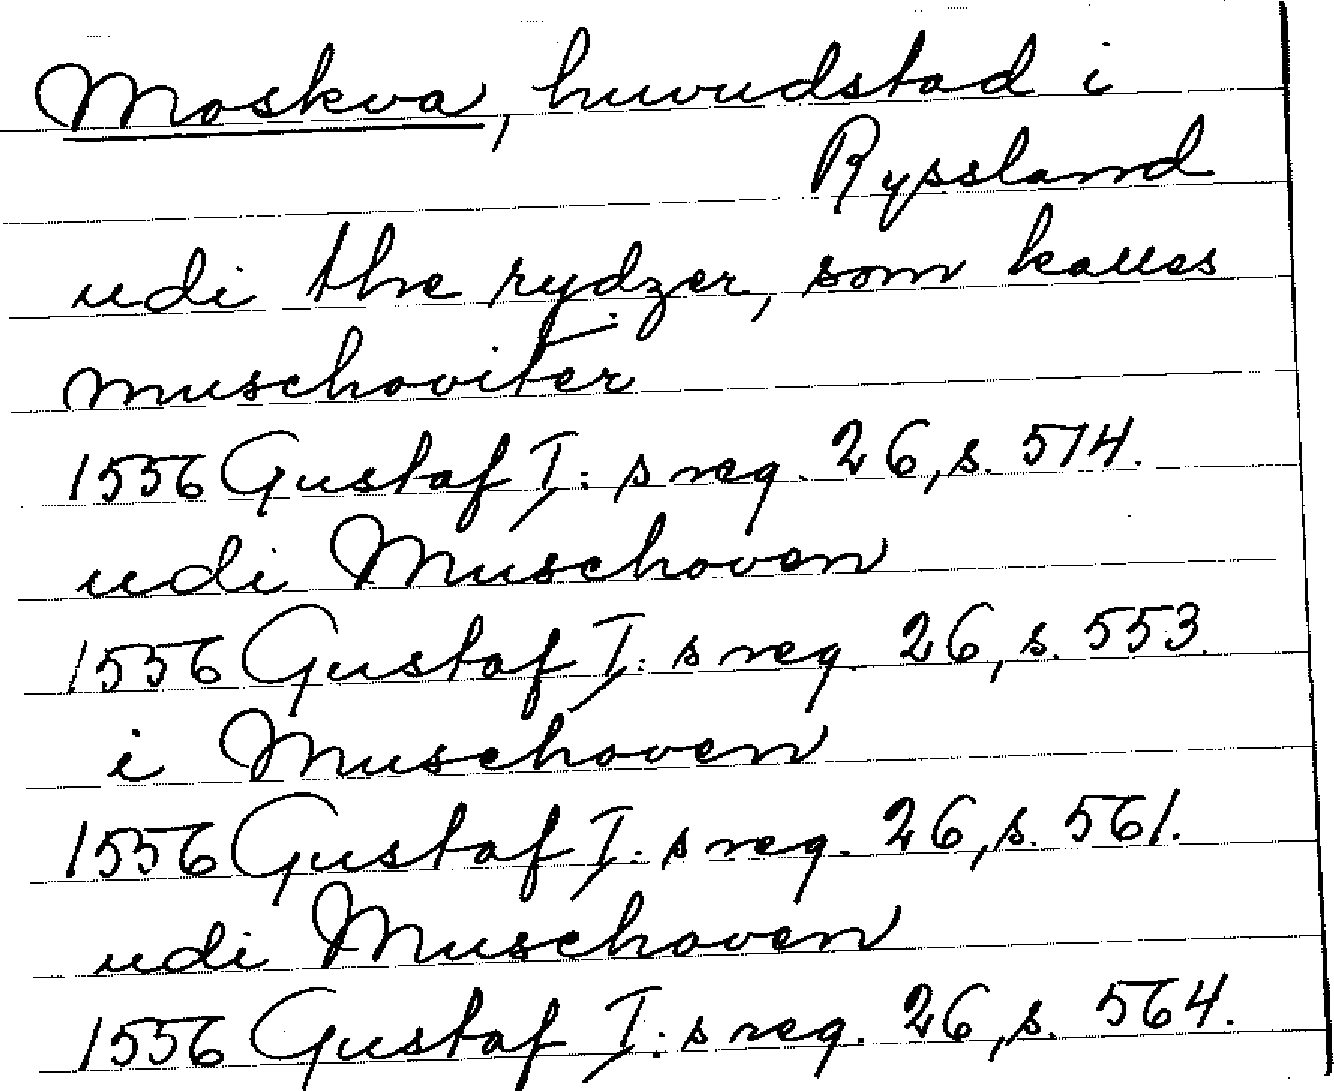 Moskva, huvudstad i
Ryssland
udi the rydzer, som kalles
muschoviter
1556 Gustaf I:s reg. 26, s. 514.
udi Muschoven
1556 Gustaf I:s reg. 26, s. 553.
i Muschoven
1556 Gustaf I:s reg. 26, s. 561.
udi Muschoven
1556 Gustaf I:s reg. 26, s. 564.